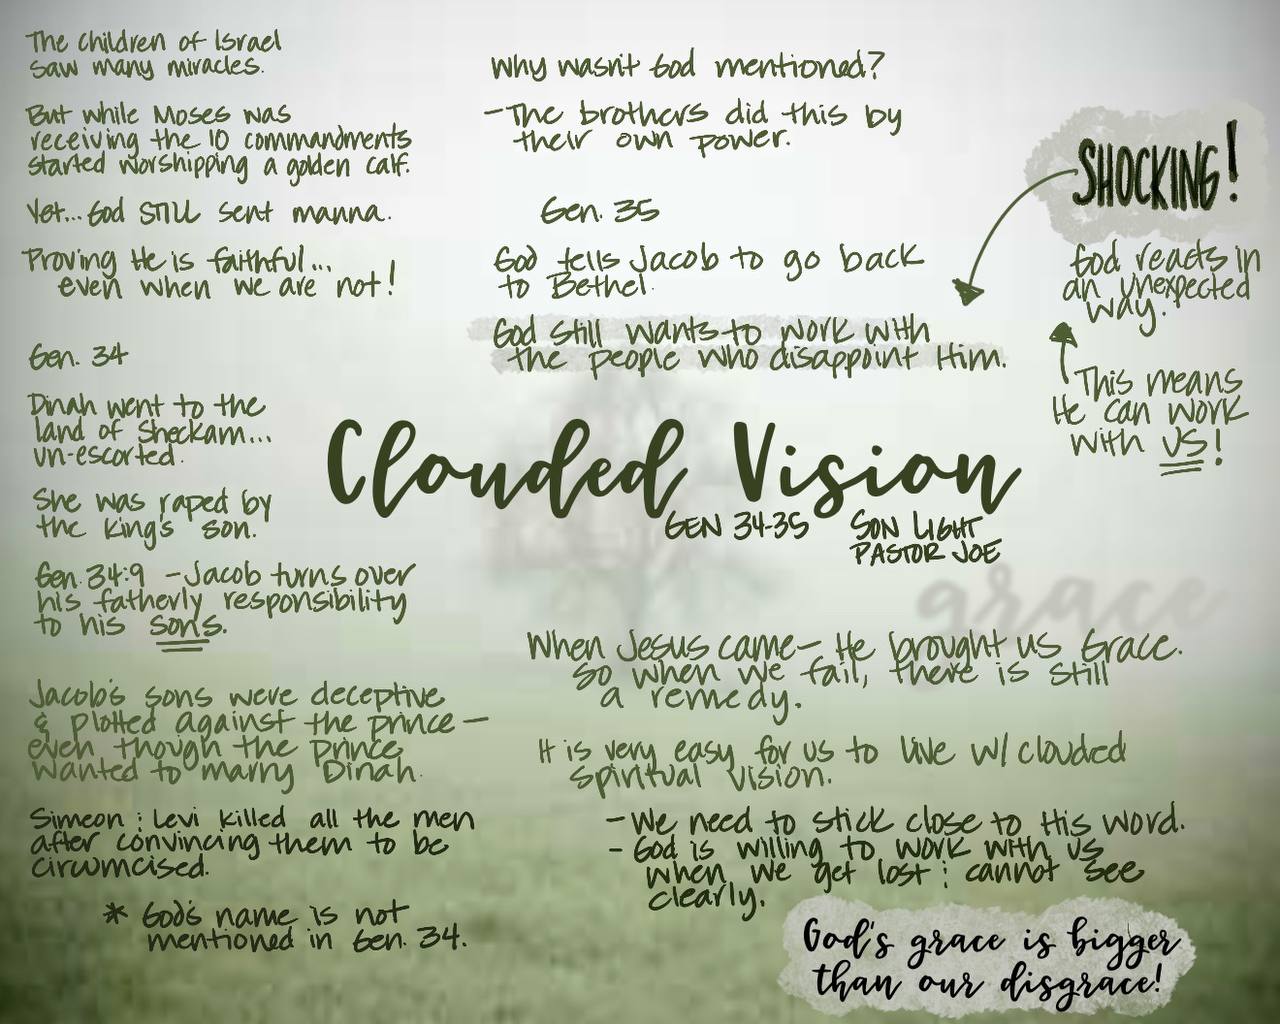 The children of Israel
saw many miracles.
But while Moses was
receiving the 10 commandments
started worshipping a golden calf.
Yet... God STILL sent manna.
Proving He is faithful...
even when we are not!
Gen. 34
Dinah went to the
land of Sheckam...
un-escorted.
She was raped by
the king's son.
Gen. 34:9 - Jacob turns over
his fatherly responsibility
to his sons.
Jacob's sons were deceptive
& plotted against the prince -
even though the prince
wanted to marry Dinah.
Simeon : Levi killed all the men
after convincing them to be
circumcised.
* God's name is not
mentioned in Gen. 34.
Why wasn't God mentioned?
- The brothers did this by
their own power.
Gen. 35
God tells Jacob to go back
to Bethel.
God still wants to work with
the people who disappoint Him.
SHOCKING!
God reacts in
an unexpected
way.
This means
He can work
with US!
Clouded Vision
GEN 34-35
SON LIGHT
PASTOR JOE
grace
When Jesus came - He brought us Grace.
So when we fail, there is still
a remedy.
It is very easy for us to live w/ clouded
spiritual vision.
- We need to stick close to His Word.
- God is willing to work with us
when we get lost : cannot see
clearly.
God's grace is bigger
than our disgrace!